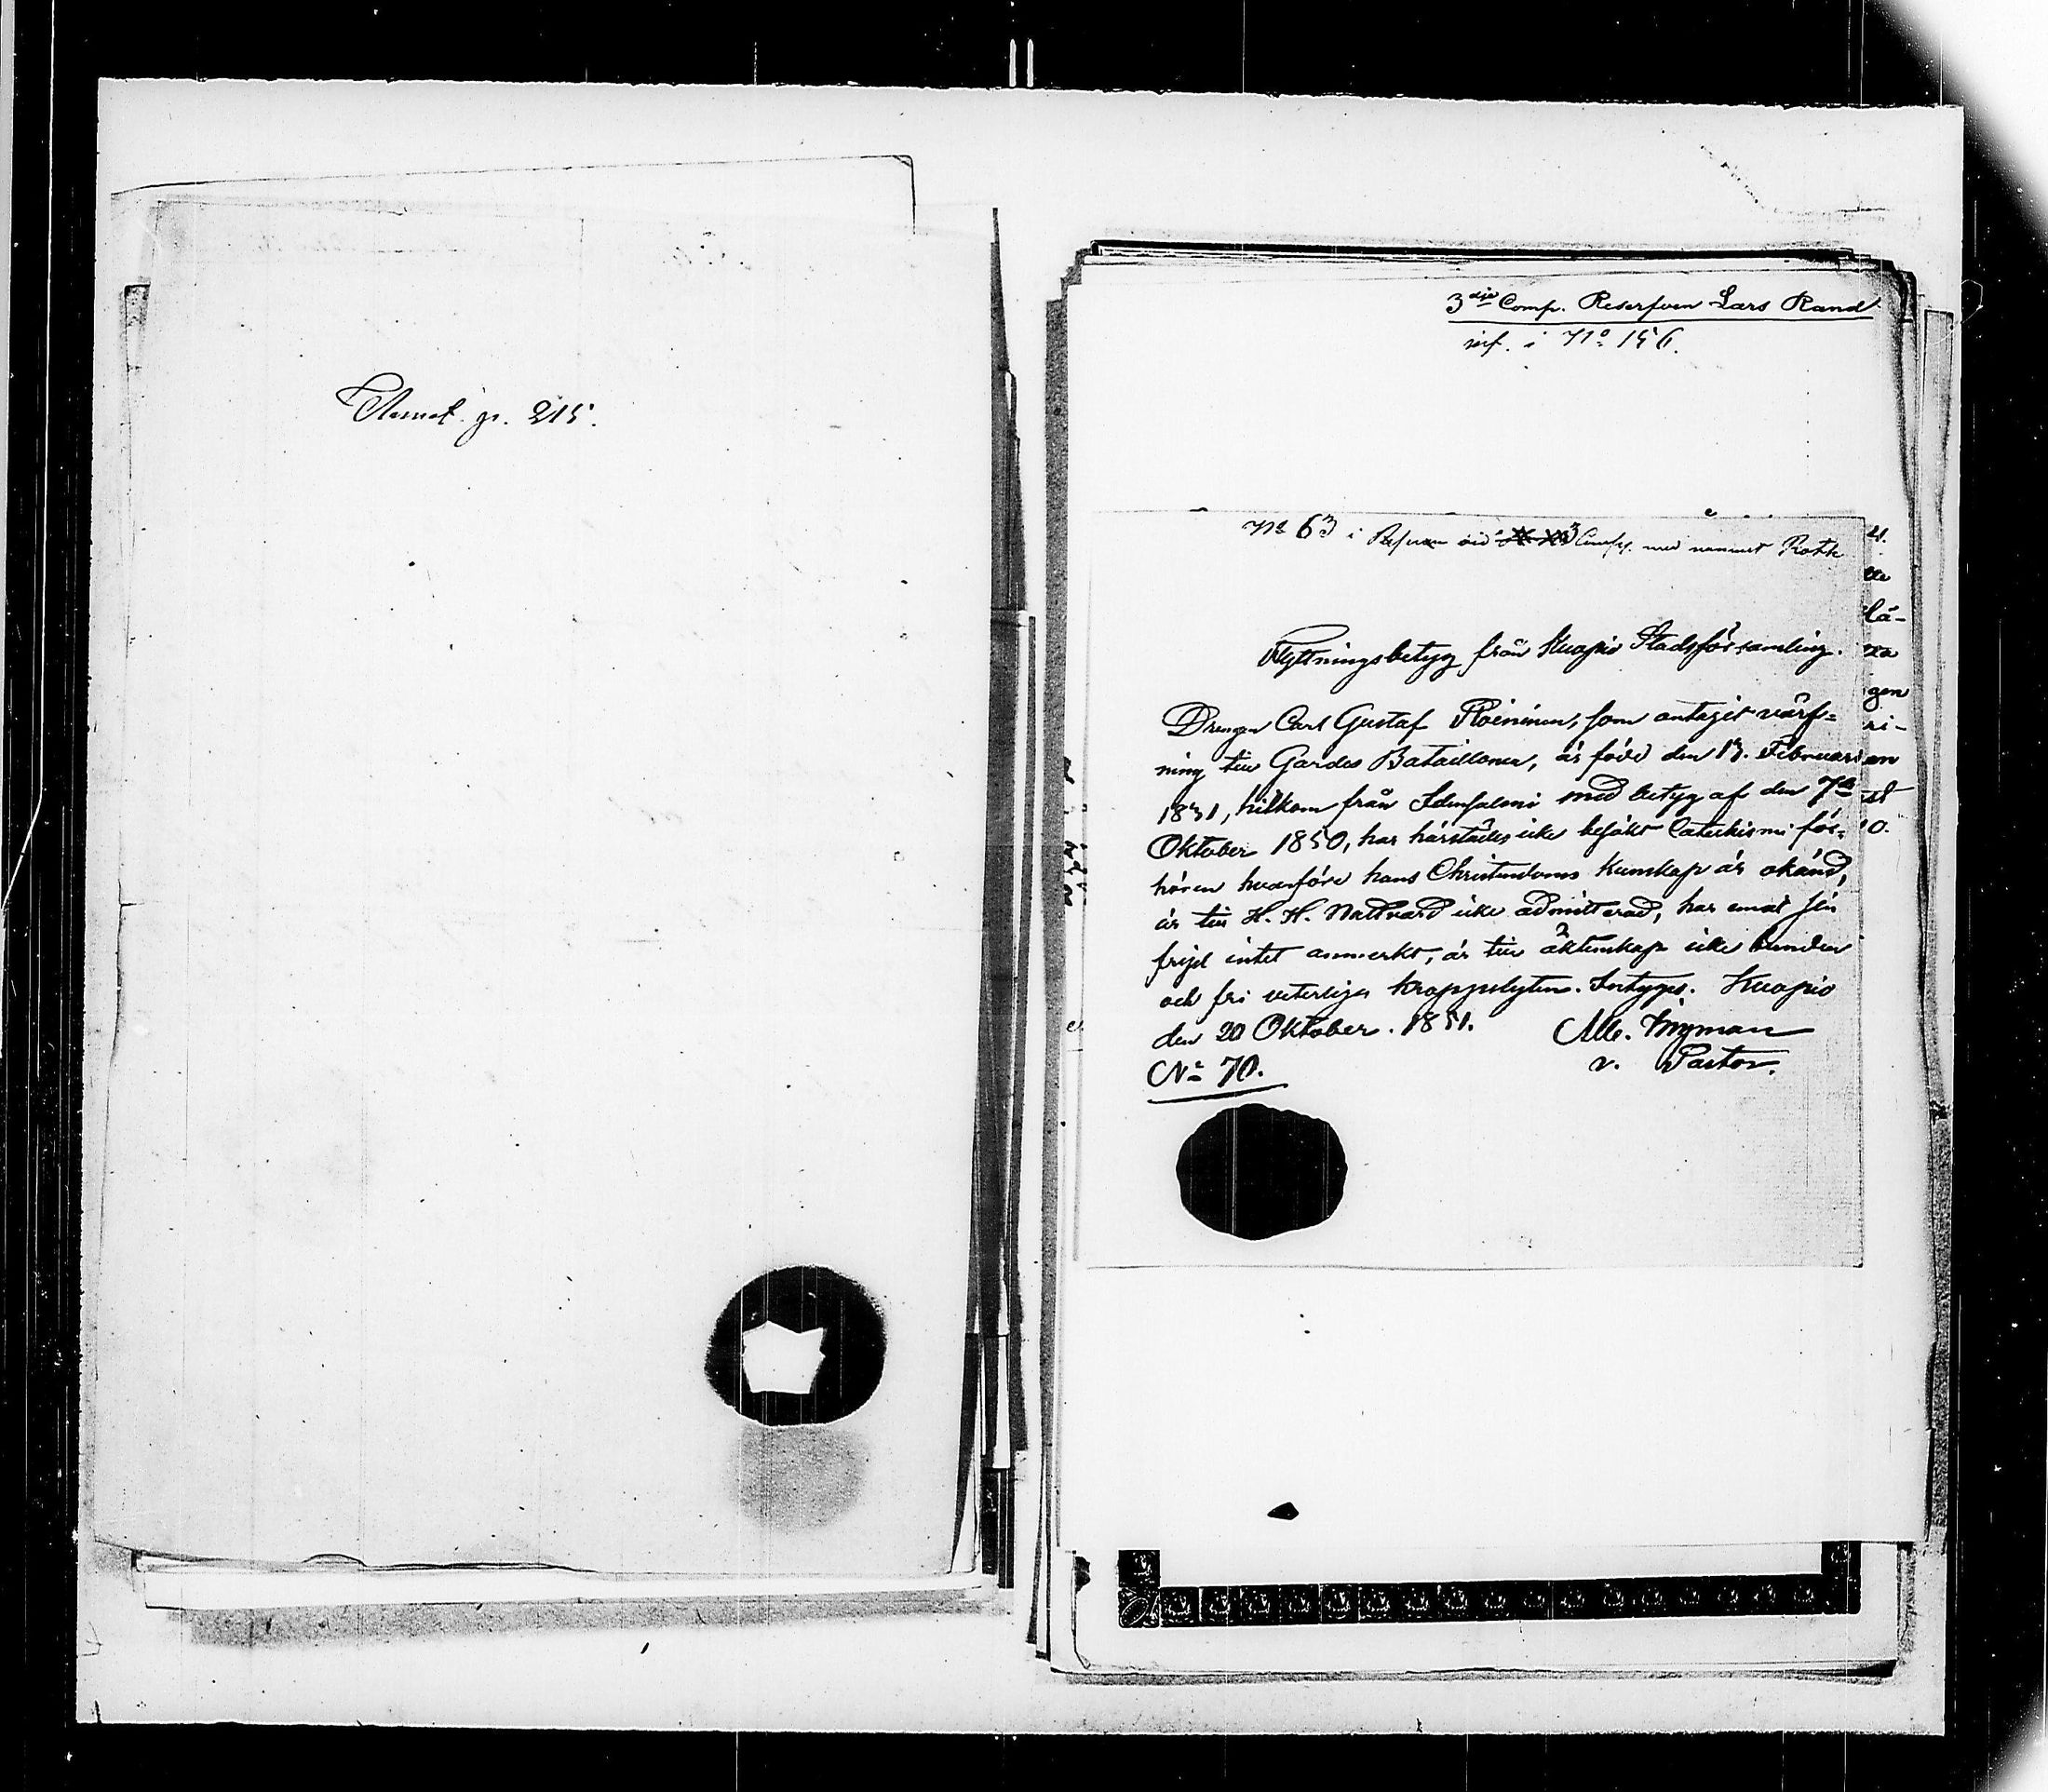 Annot. p. 215.
3die Comp. Reserfven Lars Rand
inf. i No 156.
No 63 i Reserven vid 3 Comp. med namnet Roth
Flyttningsbetyg från Kuopio Stadsförsamling.
Drengen Carl Gustaf Roininen, som antagit värf-
ning till Gardes Bataillonen, är född den 13. Februari
1831, hitkom från Idensalmi med betyg af den 7de
Oktober 1850, har härstädes icke besökt Catechismi för-
hören hvarföre hans Christendoms Kunskap är okänd,
är till H. H. Nattvard icke admitterad, har emot sin
frejd intet anmerkt, är till äktenskap icke bunden
och fri veterliga kroppslyten. Intygas. Kuopio
den 20 Oktober. 1851.
Nyman
v. Pastor.
No 70.
lä-
gen
ri-
en